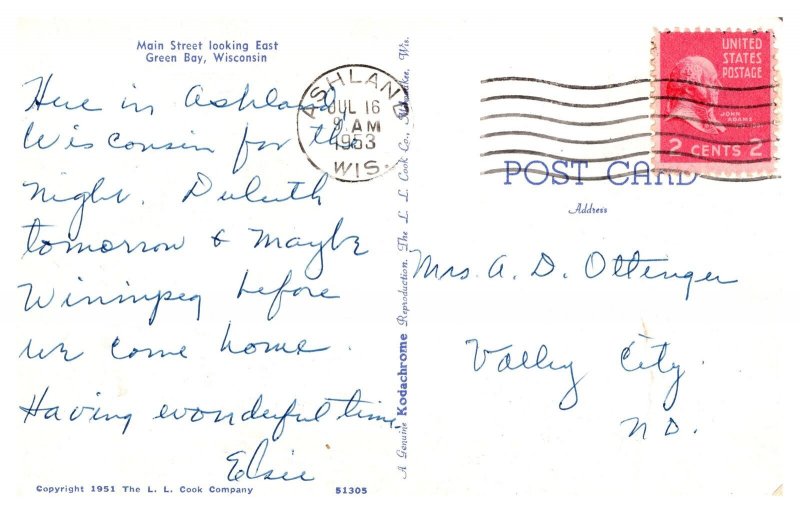 Main Street looking East
Green Bay, Wisconsin
Here in Ashland,
Wisconsin for the
night. Duluth
tomorrow & Maybe
Winnipeg before
we come home.
Having wonderful time.
Elsie
Copyright 1951 The L. L. Cook Company
51305
A Genuine Kodachrome Reproduction. The L. L. Cook Co., Milwaukee, Wis.
ASHLAND
JUL 16
9 AM
1953
WIS.
UNITED
STATES
POSTAGE
JOHN
ADAMS
2 CENTS 2
POST CARD
Address
Mrs. A. D. Ottenger
Valley City
N D.